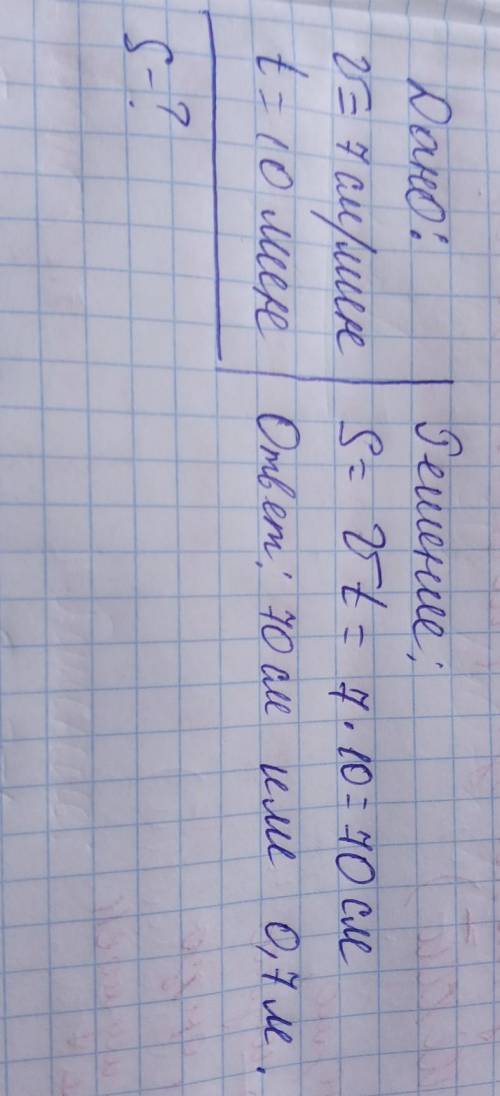 Дано:
v = 7 см/мин
t = 10 мин
S - ?
Решение:
S = vt = 7 · 10 = 70 см
Ответ: 70 см или 0,7 м.